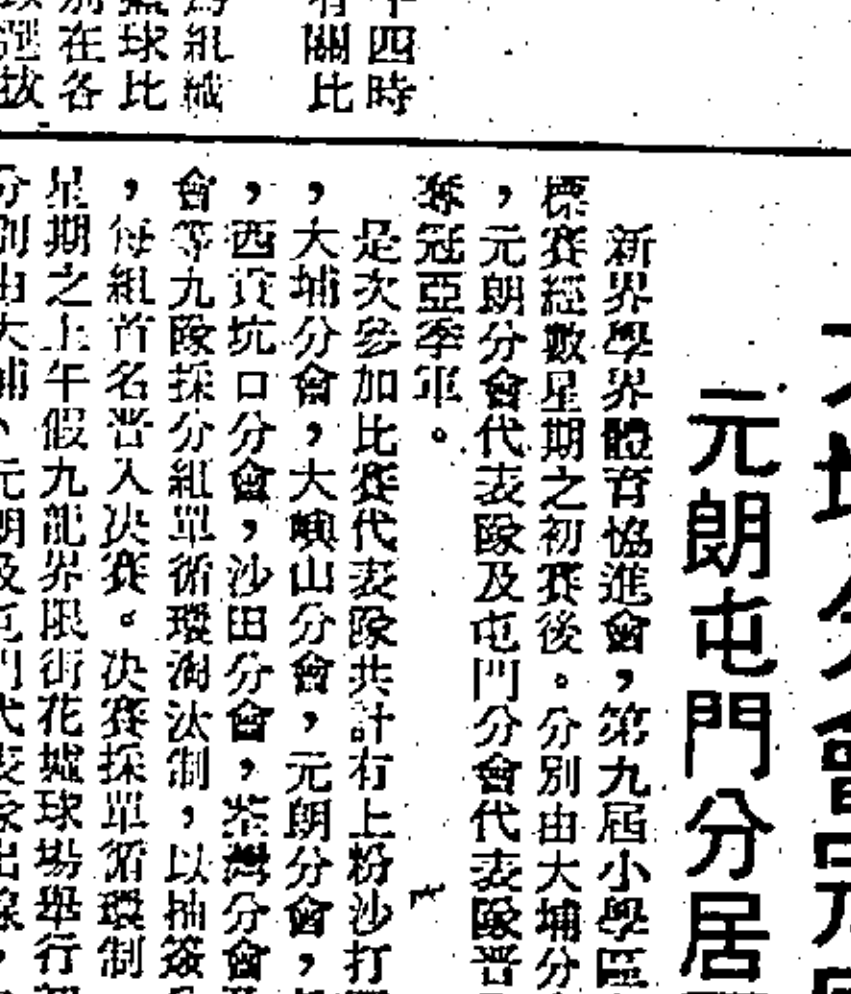 大埔分會
元朗屯門分居
新界學界體育協進會，第九屆小學區
標賽經數星期之初賽後。分別由大埔分
，元朗分會代表隊及屯門分會代表隊晋
奪冠亞季軍。
是次參加比賽代表隊共計有上粉沙打
，大埔分會，大嶼山分會，元朗分會，
，西貢坑口分會，沙田分會，荃灣分會
會等九隊採分組單循環淘汰制，以抽簽
，每組首名晋入决賽。决賽採單循環制
星期之上午假九龍界限街花墟球場舉行
分別由大埔、元朗及屯門代表隊出線，
四時
有關比
組織
球比
別在各
選拔